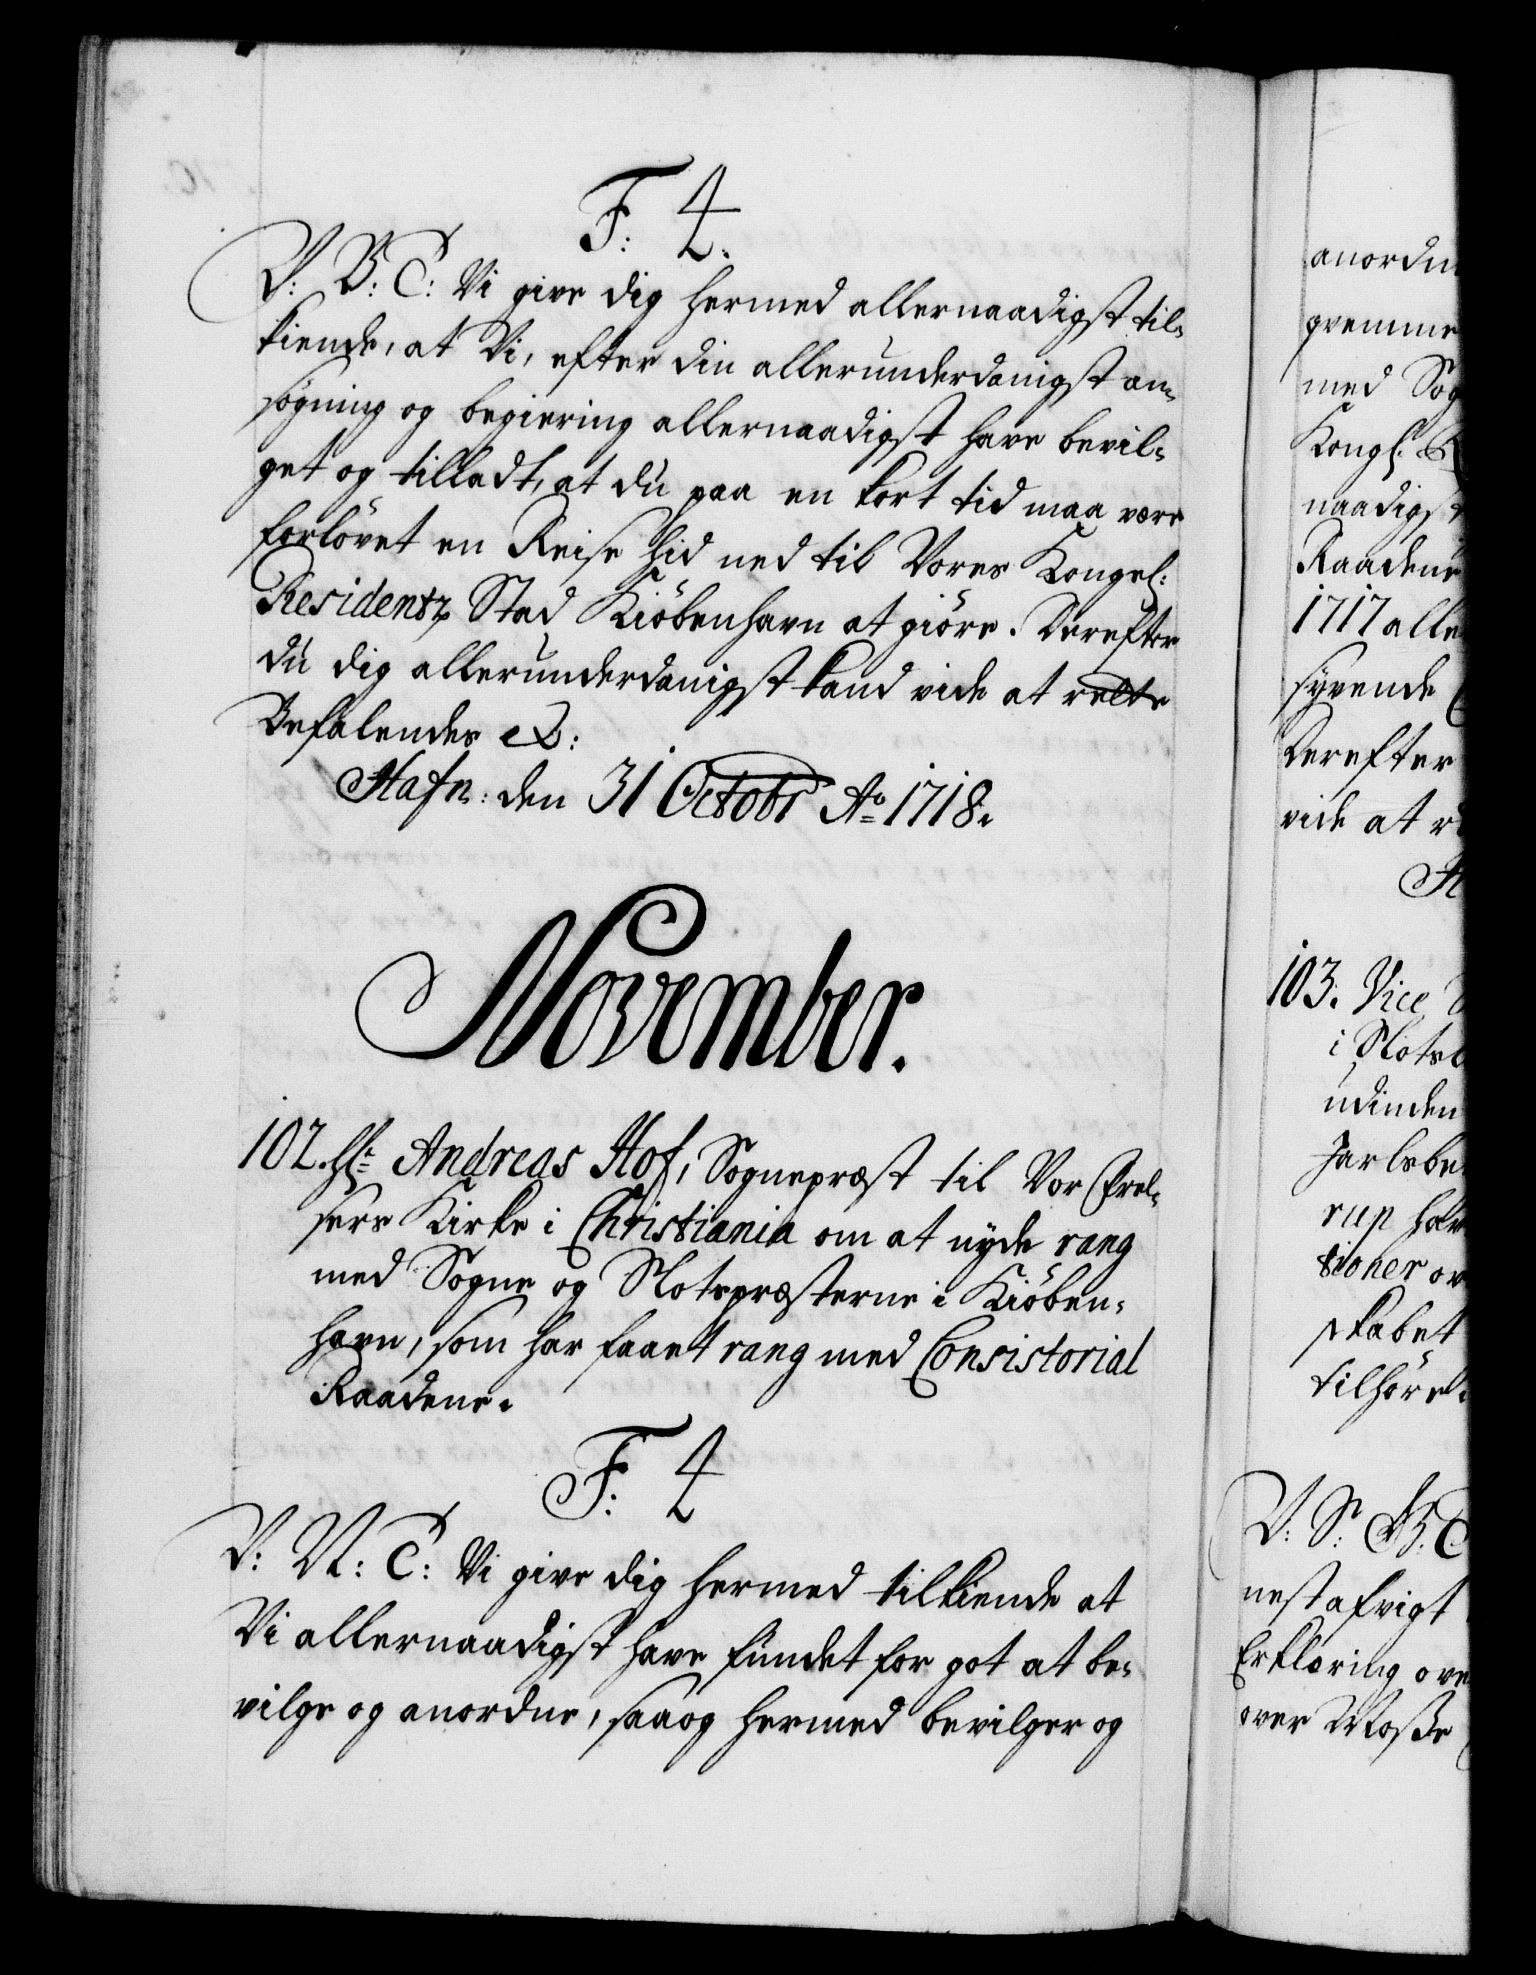 F: 4.
V: B: C: Vi give dig hermed allernaadigst til-
kiende, at Vi, efter din allerunderdanigst an-
søgning og begiering allernaadigst have bevil-
get og tilladt, at du paa en kort tid maa være
forlövet en Reise hid ned til Vores Kongel:
Residentz Stad Kiöbenhavn at giöre. Derefter
du dig allerunderdanigst kand vide at rette
Befalendes &:
Hafn: den 31 Octobr Ao 1718.
November.
102. Hr Andreas Hof, Sognepræst til Vor Frel-
sers Kirke i Christiania om at nyde rang
med Sogne og Slotspræsterne i Kiöben-
havn, som har faaet rang med Consistorial
Raadene.
F: 4
V: N: C: Vi give dig hermed tilkiende at
Vi allernaadigst have fundet for got at be-
vilge og anordne, saa og hermed bevilger og
anordn
gremme
med Sog
Kongl.
naadigst
Raadene
1717 alle
syvende
Derefter
vide at r
H
103. Vice
i Slots
udinden
Jarlsbe
rup hav
tioner ov
skabet
tilhöre
V: S: G: C
nest afvigt
Erklæring ove
over Mosse